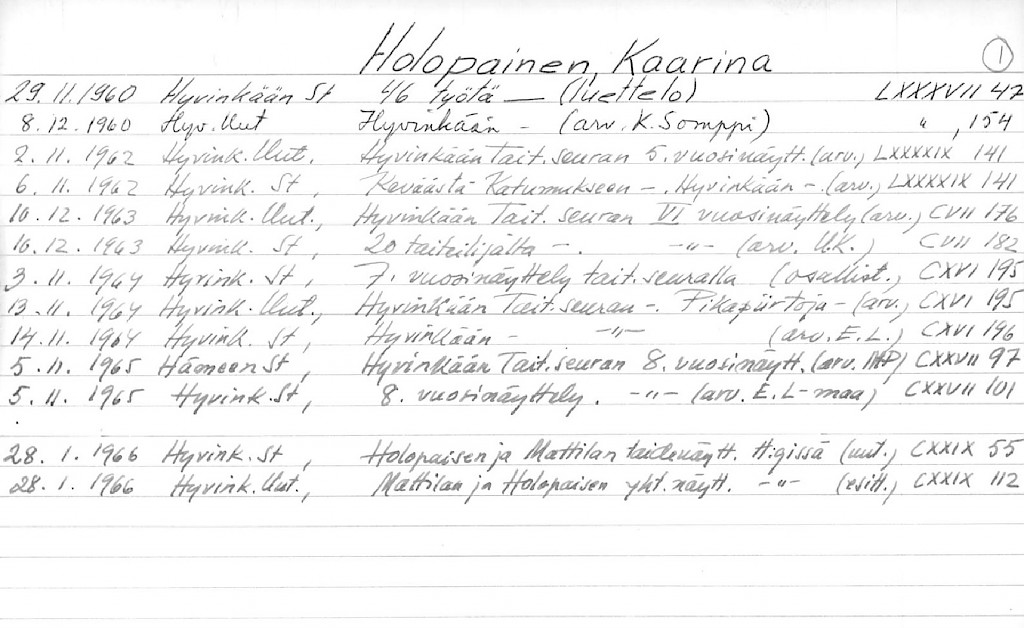 Holopainen, Kaarina 1
29.11.1960 Hyvinkään St 46 työtä — (luettelo) LXXXVII 42
8.12.1960 Hyv. Uut Hyvinkään - (arv. K. Somppi) " , 154
2.11.1962 Hyvink. Uut., Hyvinkään Tait. seuran 5. vuosinäytt. (arv.) LXXXXIX 141
6.11.1962 Hyvink. St , Keväästä Katumukseen -. Hyvinkään -. (arv.) LXXXXIX 141
10.12.1963 Hyvink. Uut., Hyvinkään Tait. seuran VI vuosinäyttely (arv.) CVII 176
10.12.1963 Hyvink. St , 20 taiteilijalta -. -"- (arv. U.K.) CVII 182
3.11.1964 Hyvink. St , 7. vuosinäyttely tait. seuralla (osallist.) CXVI 195
13.11.1964 Hyvink. Uut., Hyvinkään Tait. seuran -. Pikapiirtoja - (arv.) CXVI 195
14.11.1964 Hyvink. St , Hyvinkään - -"- (arv. E.L.) CXVI 196
5.11.1965 Hämeen St , Hyvinkään Tait. seuran 8. vuosinäytt. (arv. MP) CXXVII 97
5.11.1965 Hyvink. St , 8. vuosinäyttely . -"- (arv. E.L-maa) CXXVII 101
28.1.1966 Hyvink. St , Holopaisen ja Mattilan taidenäytt. H:gissä (uut.) CXXIX 55
28.1.1966 Hyvink. Uut., Mattilan ja Holopaisen yht. näytt. -"- (esitt.) CXXIX 112